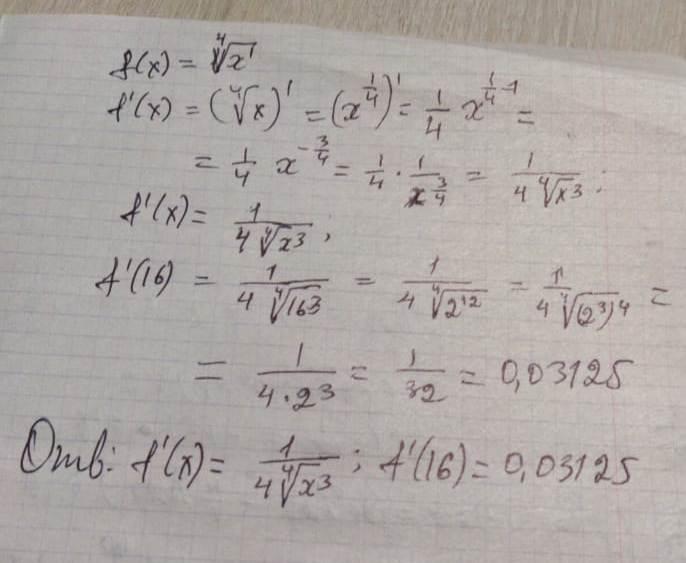 f(x) = ∜x
f'(x) = (∜x)' = (x^{1/4})' = 1/4 x^{1/4 - 1} =
= 1/4 x^{-3/4} = 1/4 · 1/x^{3/4} = 1/(4 ∜x³) ;
f'(x) = 1/(4 ∜x³) ;
f'(16) = 1/(4 ∜16³) = 1/(4 ∜2¹²) = 1/(4 ∜(2³)⁴) =
= 1/(4·2³) = 1/32 = 0,03125
Отв: f'(x) = 1/(4 ∜x³) ; f'(16) = 0,03125